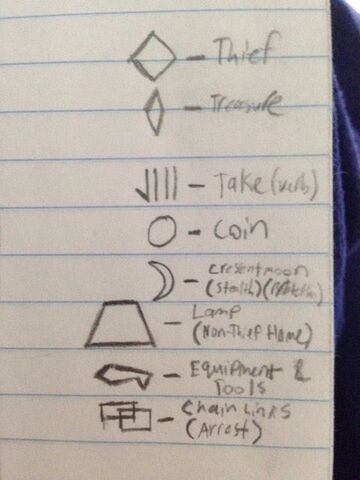 - Thief
- Treasure
- Take (verb)
- Coin
- Cresent moon
(Stealth)
- Lamp
(Non-Thief Home)
- Equipment &
Tools
- Chain Links
(Arrest)